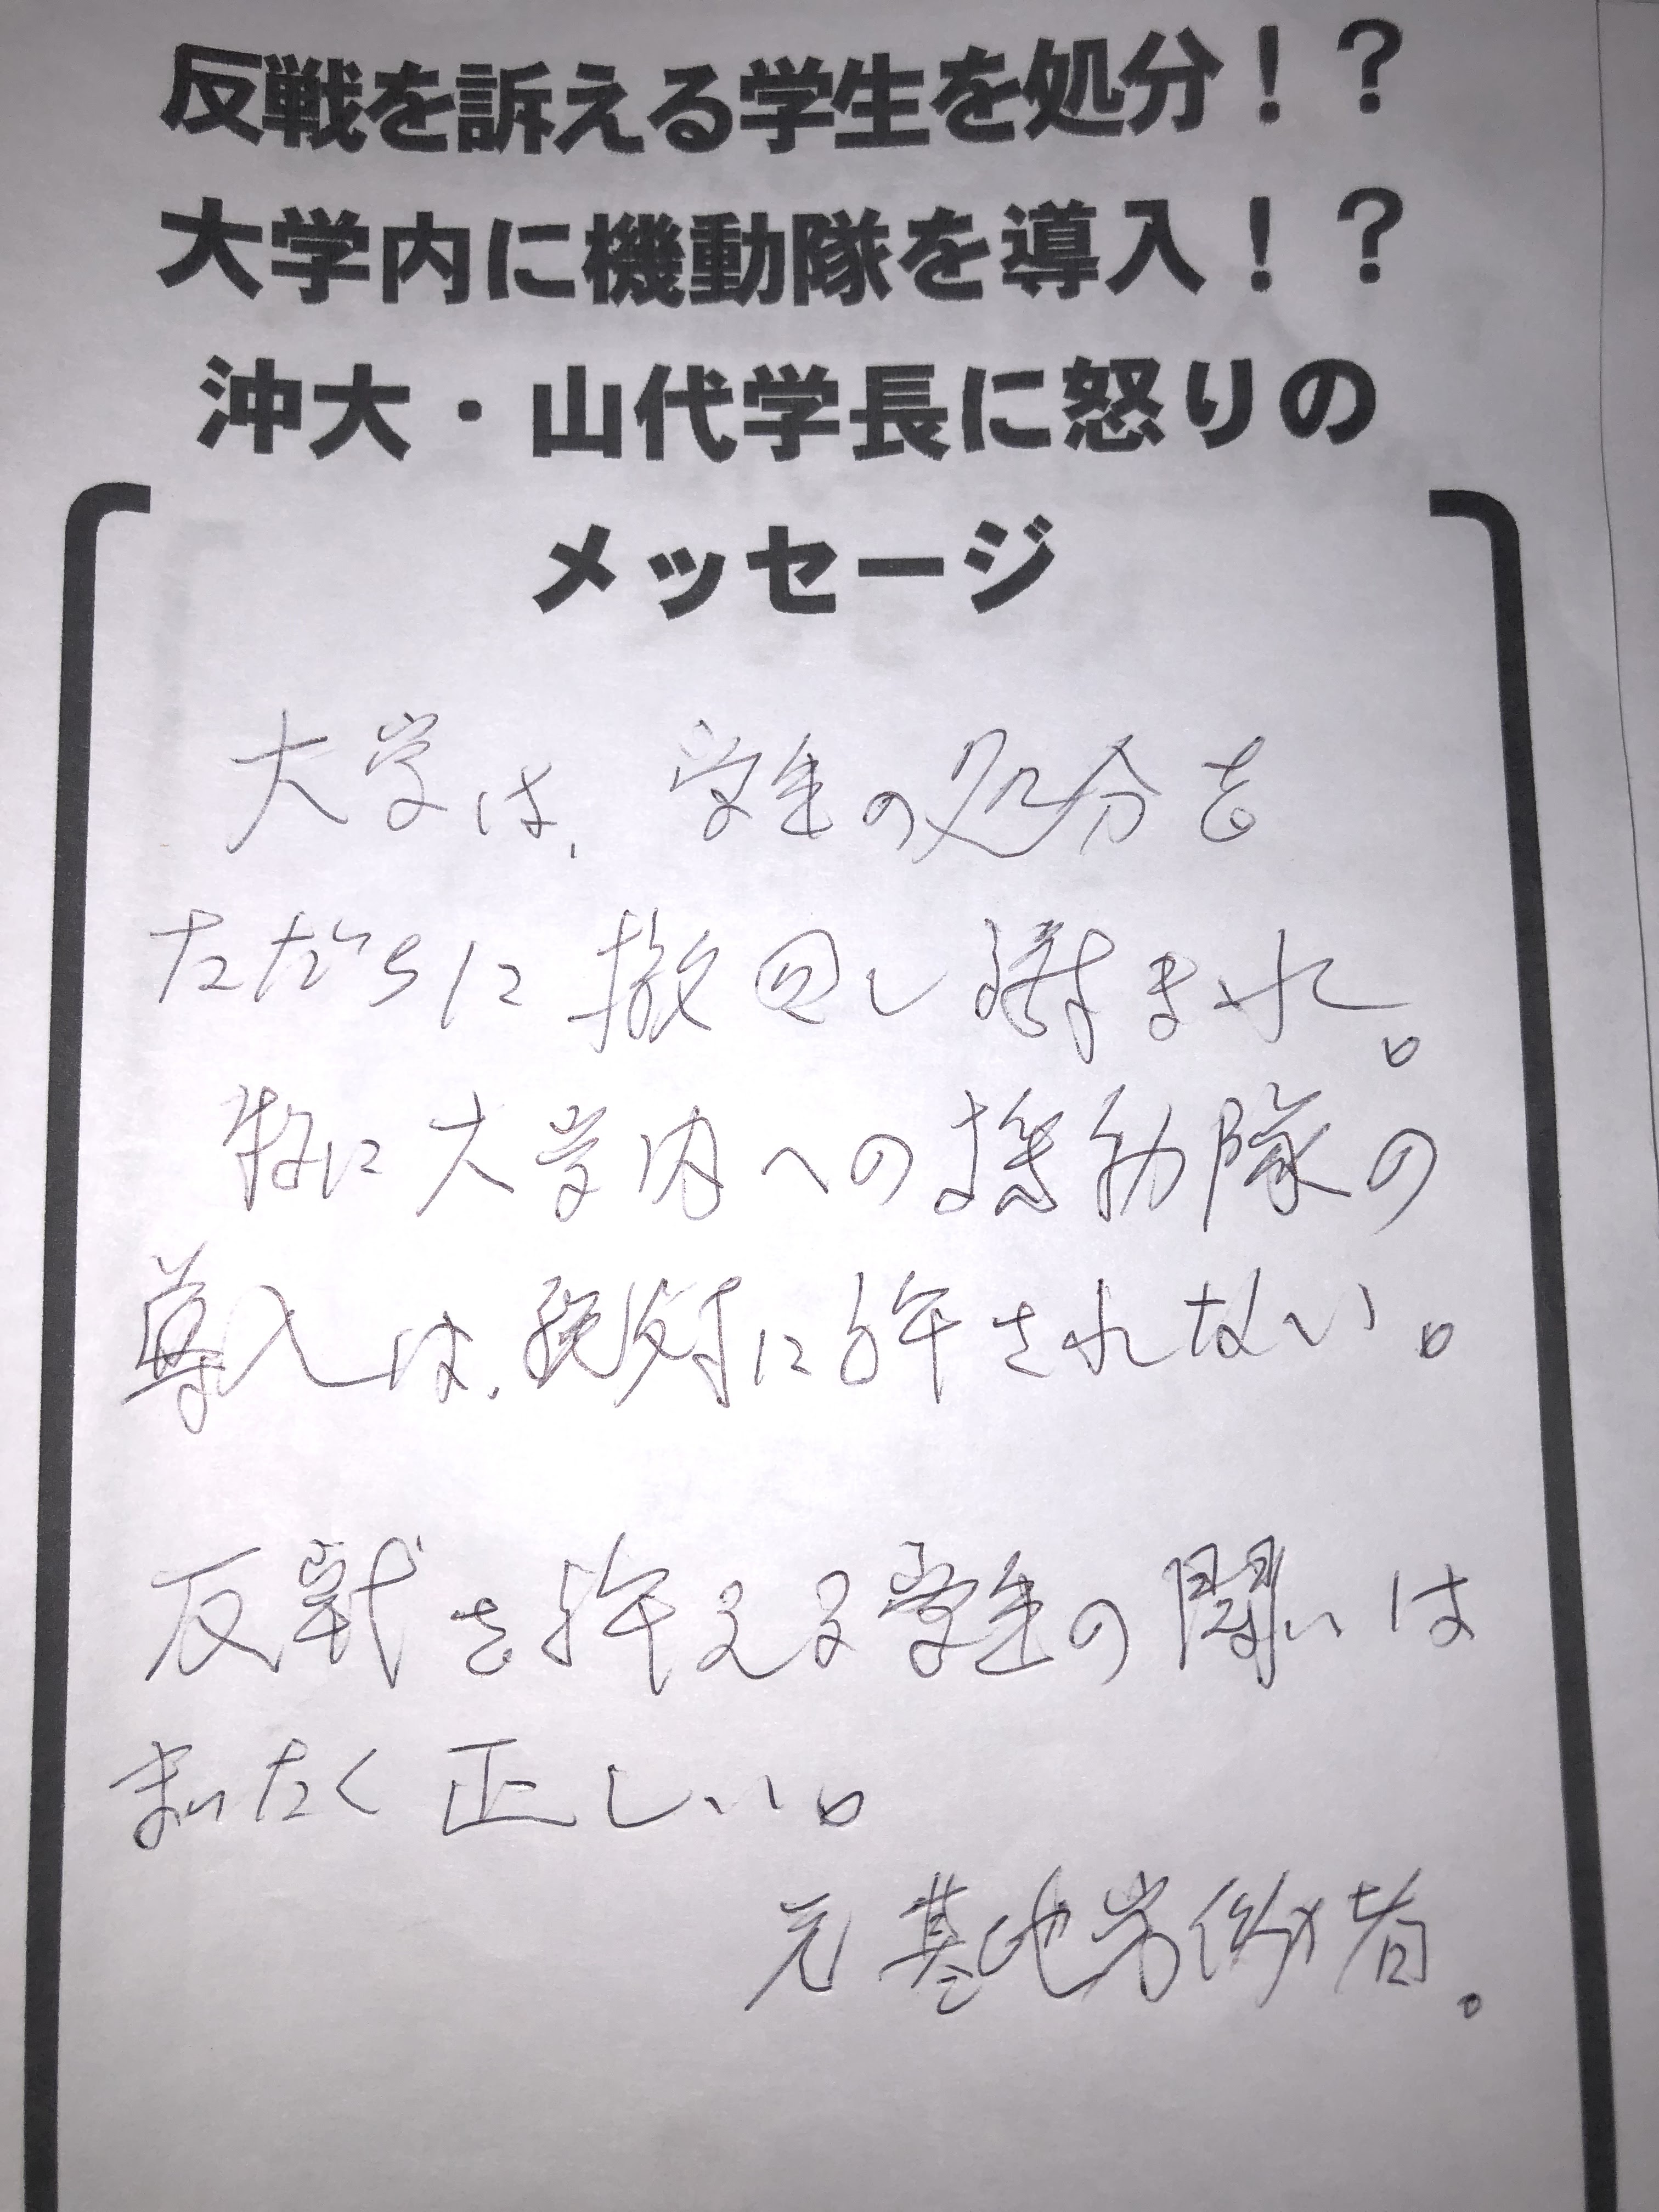 反戦を訴える学生を処分！？
大学内に機動隊を導入！？
沖大・山代学長に怒りの
メッセージ
大学は、学生の処分を
ただちに撤回し謝まれ。
特に大学内への機動隊の
導入は、絶対に許されない。
反戦を訴える学生の闘いは
まったく正しい。
元基地労働者。